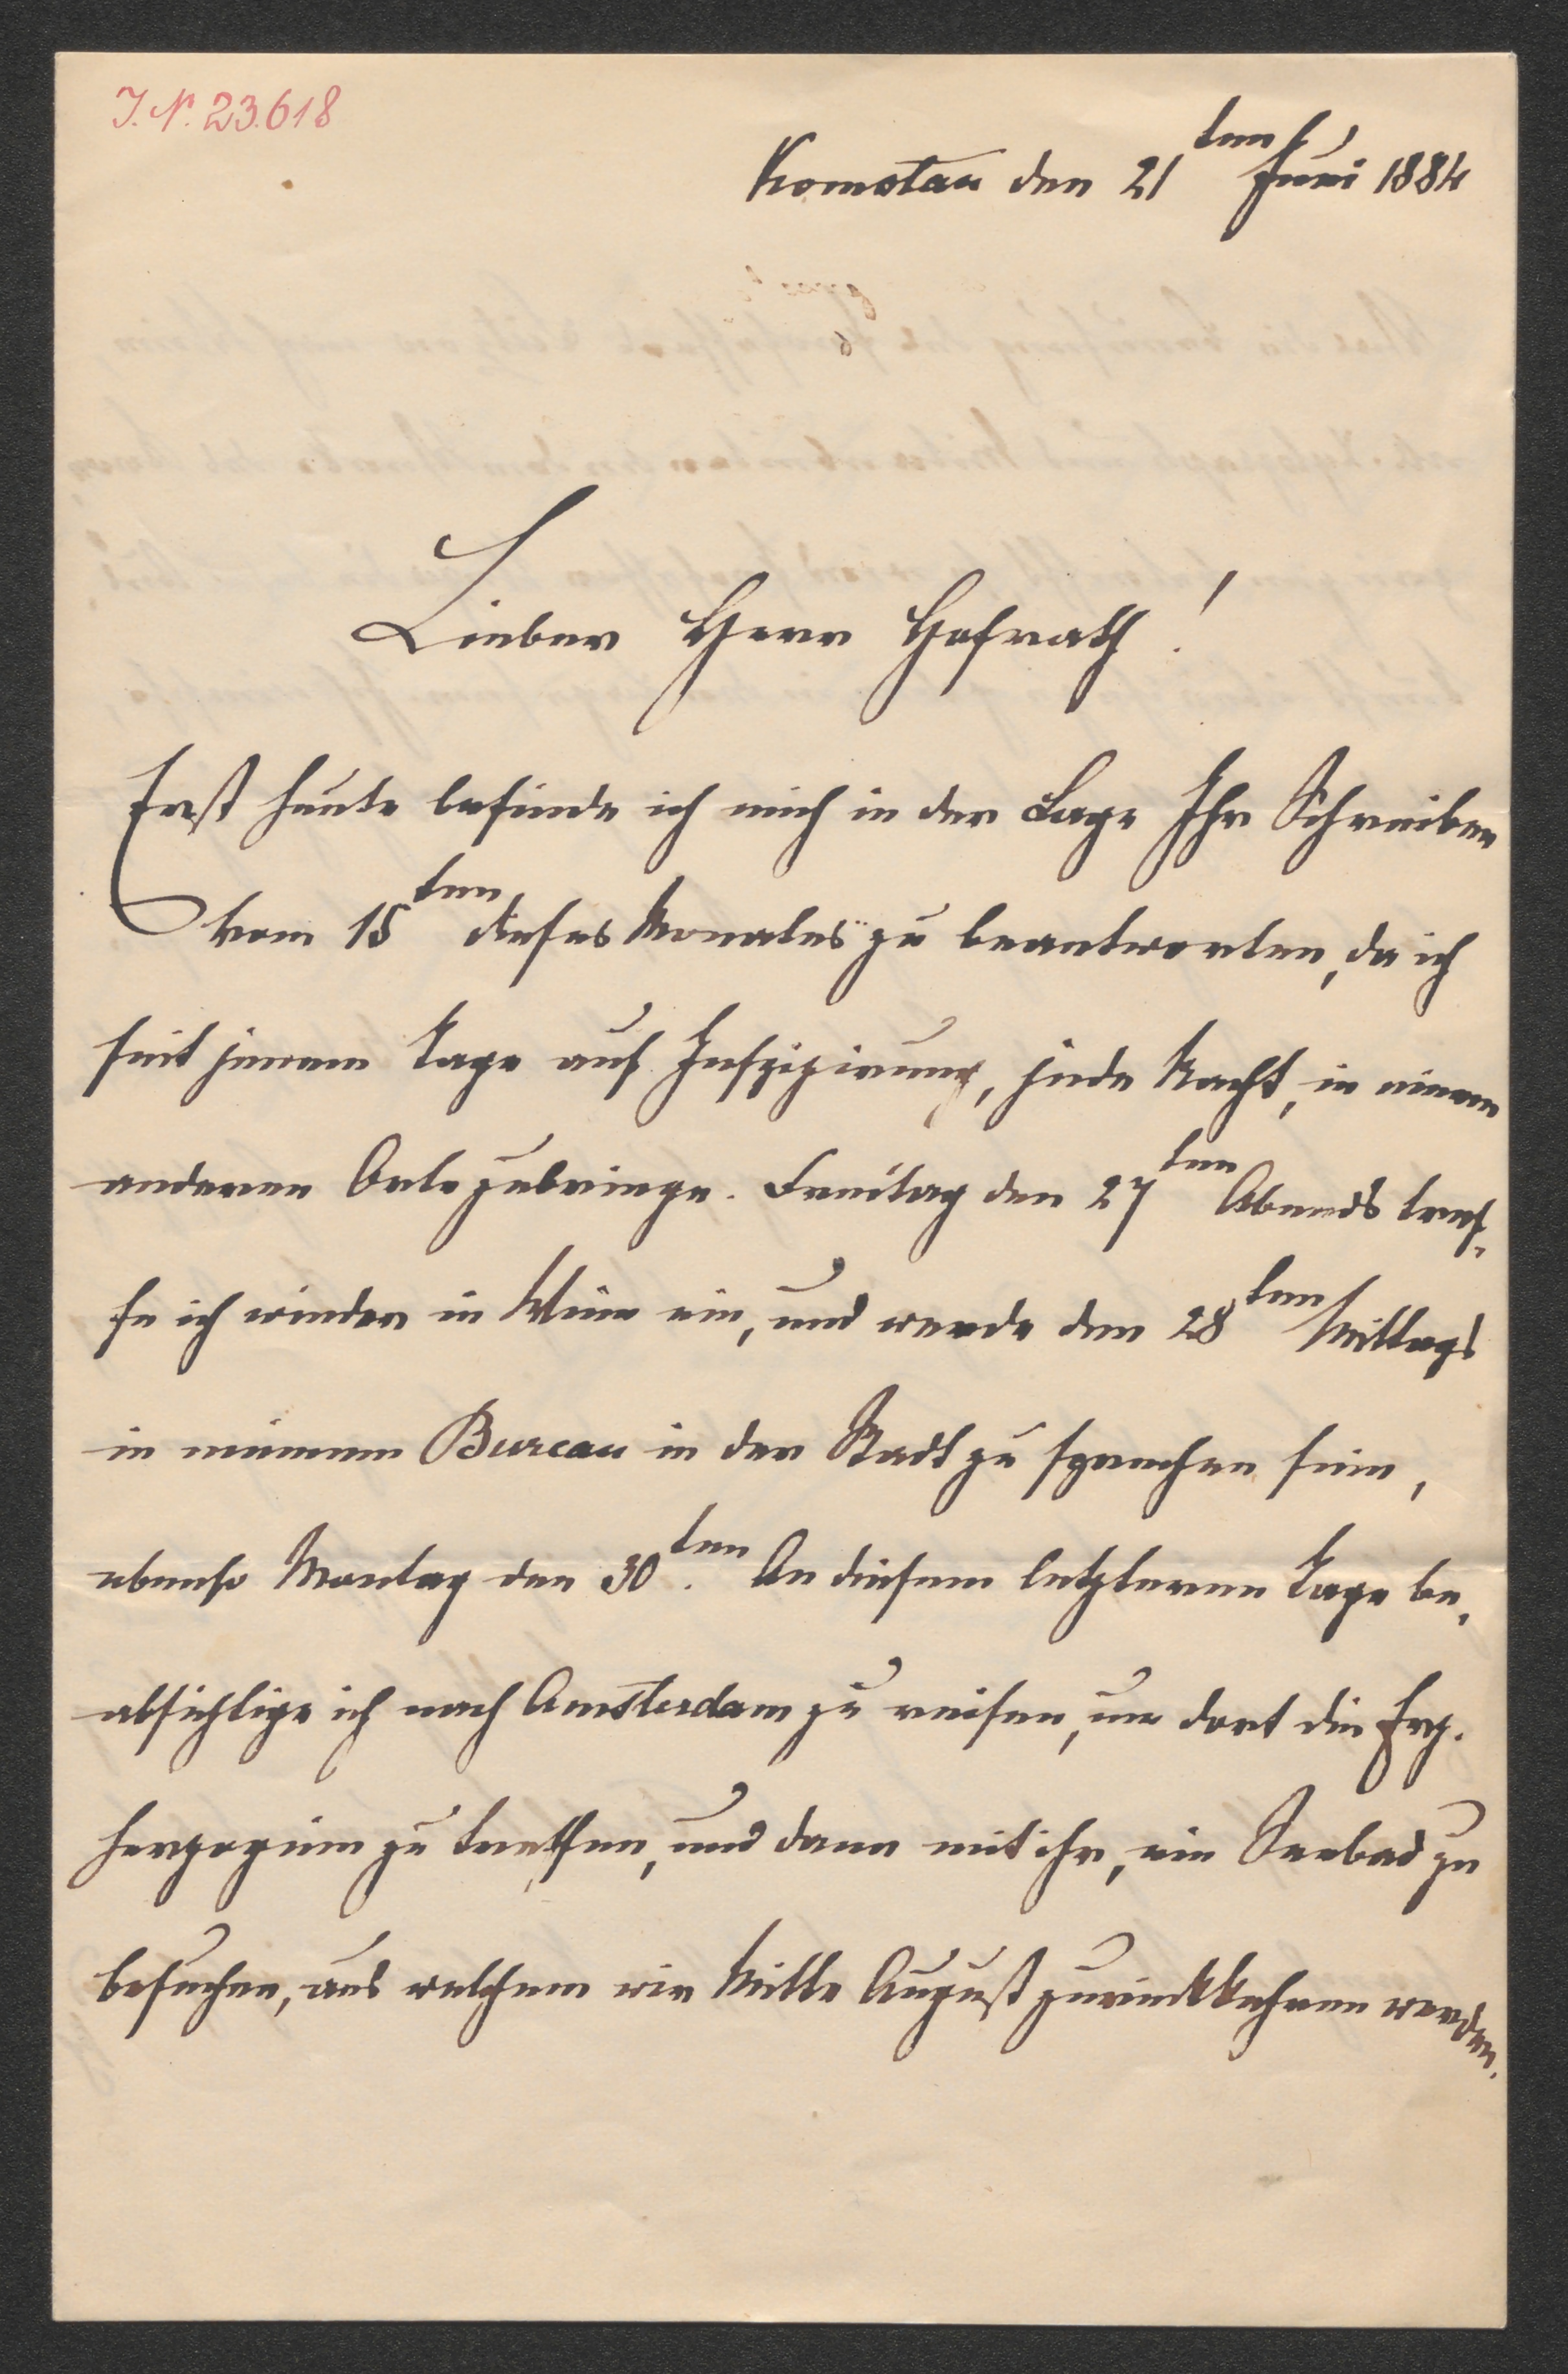 J. N. 23.618
Komotau den 21ten Juni 1884
Lieber Herr Hofrath!
Erst heute befinde ich mich in der Lage Ihr Schreiben
vom 15ten dieses Monates zu beantworten, da ich
seit jenem Tage auf Inspizirung, jede Nacht, in einem
anderen Orte zubringe. Freitag den 27ten Abends tref-
fe ich wieder in Wien ein, und werde den 28ten Mittags
in meinem Bureau in der Stadt zu sprechen sein,
ebenso Montag den 30ten. An diesem letzteren Tage be-
absichtige ich nach Amsterdam zu reisen, um dort die Erz-
herzogin zu treffen, und dann mit ihr, ein Seebad zu
besuchen, aus welchem wir Mitte August zurückkehren werden.